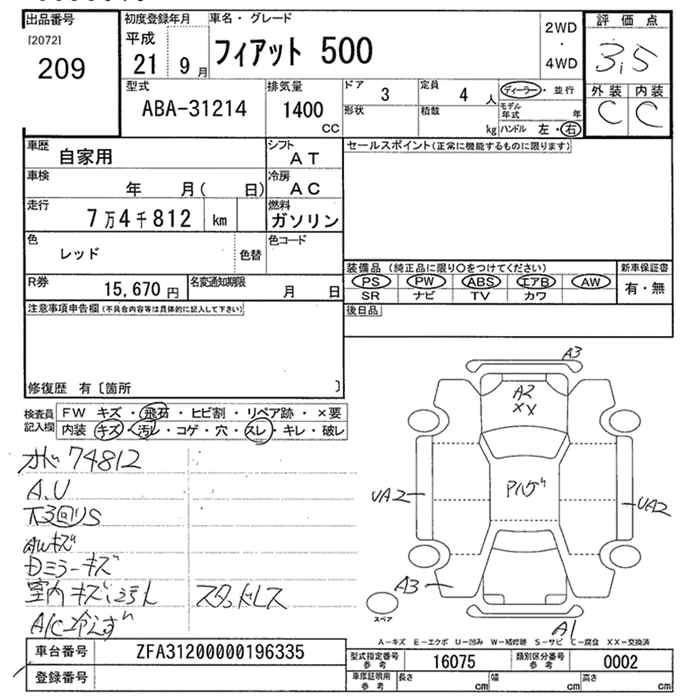 出品番号
[2072]
209
初度登録年月
平成
21 9月
車名・グレード
フィアット 500
2WD
・
4WD
評価点
3,5
外装 内装
C C
型式
ABA-31214
排気量
1400
CC
ドア
3
定員
4 人
形状
積載
kg
ディーラー・並行
モデル年式 年
ハンドル 左・右
車歴
自家用
シフト
AT
車検
年 月( 日)
冷房
AC
走行
7万4千812 km
燃料
ガソリン
色
レッド
色替
色コード
R券
15,670 円
名変通知期限
月 日
セールスポイント(正常に機能するものに限ります)
装備品 (純正品に限り○をつけてください)
新車保証書
PS PW ABS エアB AW
SR ナビ TV カワ
有・無
後日品
注意事項申告欄(不具合内容等は具体的に記入して下さい)
修復歴 有[箇所 ]
検査員記入欄
FW キズ・飛石・ヒビ割・リペア跡・×要
内装 キズ・汚レ・コゲ・穴・スレ・キレ・破レ
74812
A.U
下回りS
AWキズ
Dミラーキズ
室内キズ
スタッドレス
A/C冷えず
A3
A2
XX
UA2
UA2
A3
A1
スペア
A-キズ E-エクボ U-凹み W-補修跡 S-サビ C-腐食 XX-交換済
車台番号
ZFA31200000196335
登録番号
型式指定番号
参考
16075
類別区分番号
参考
0002
車庫証明用
参考
長さ cm
幅 cm
高さ cm